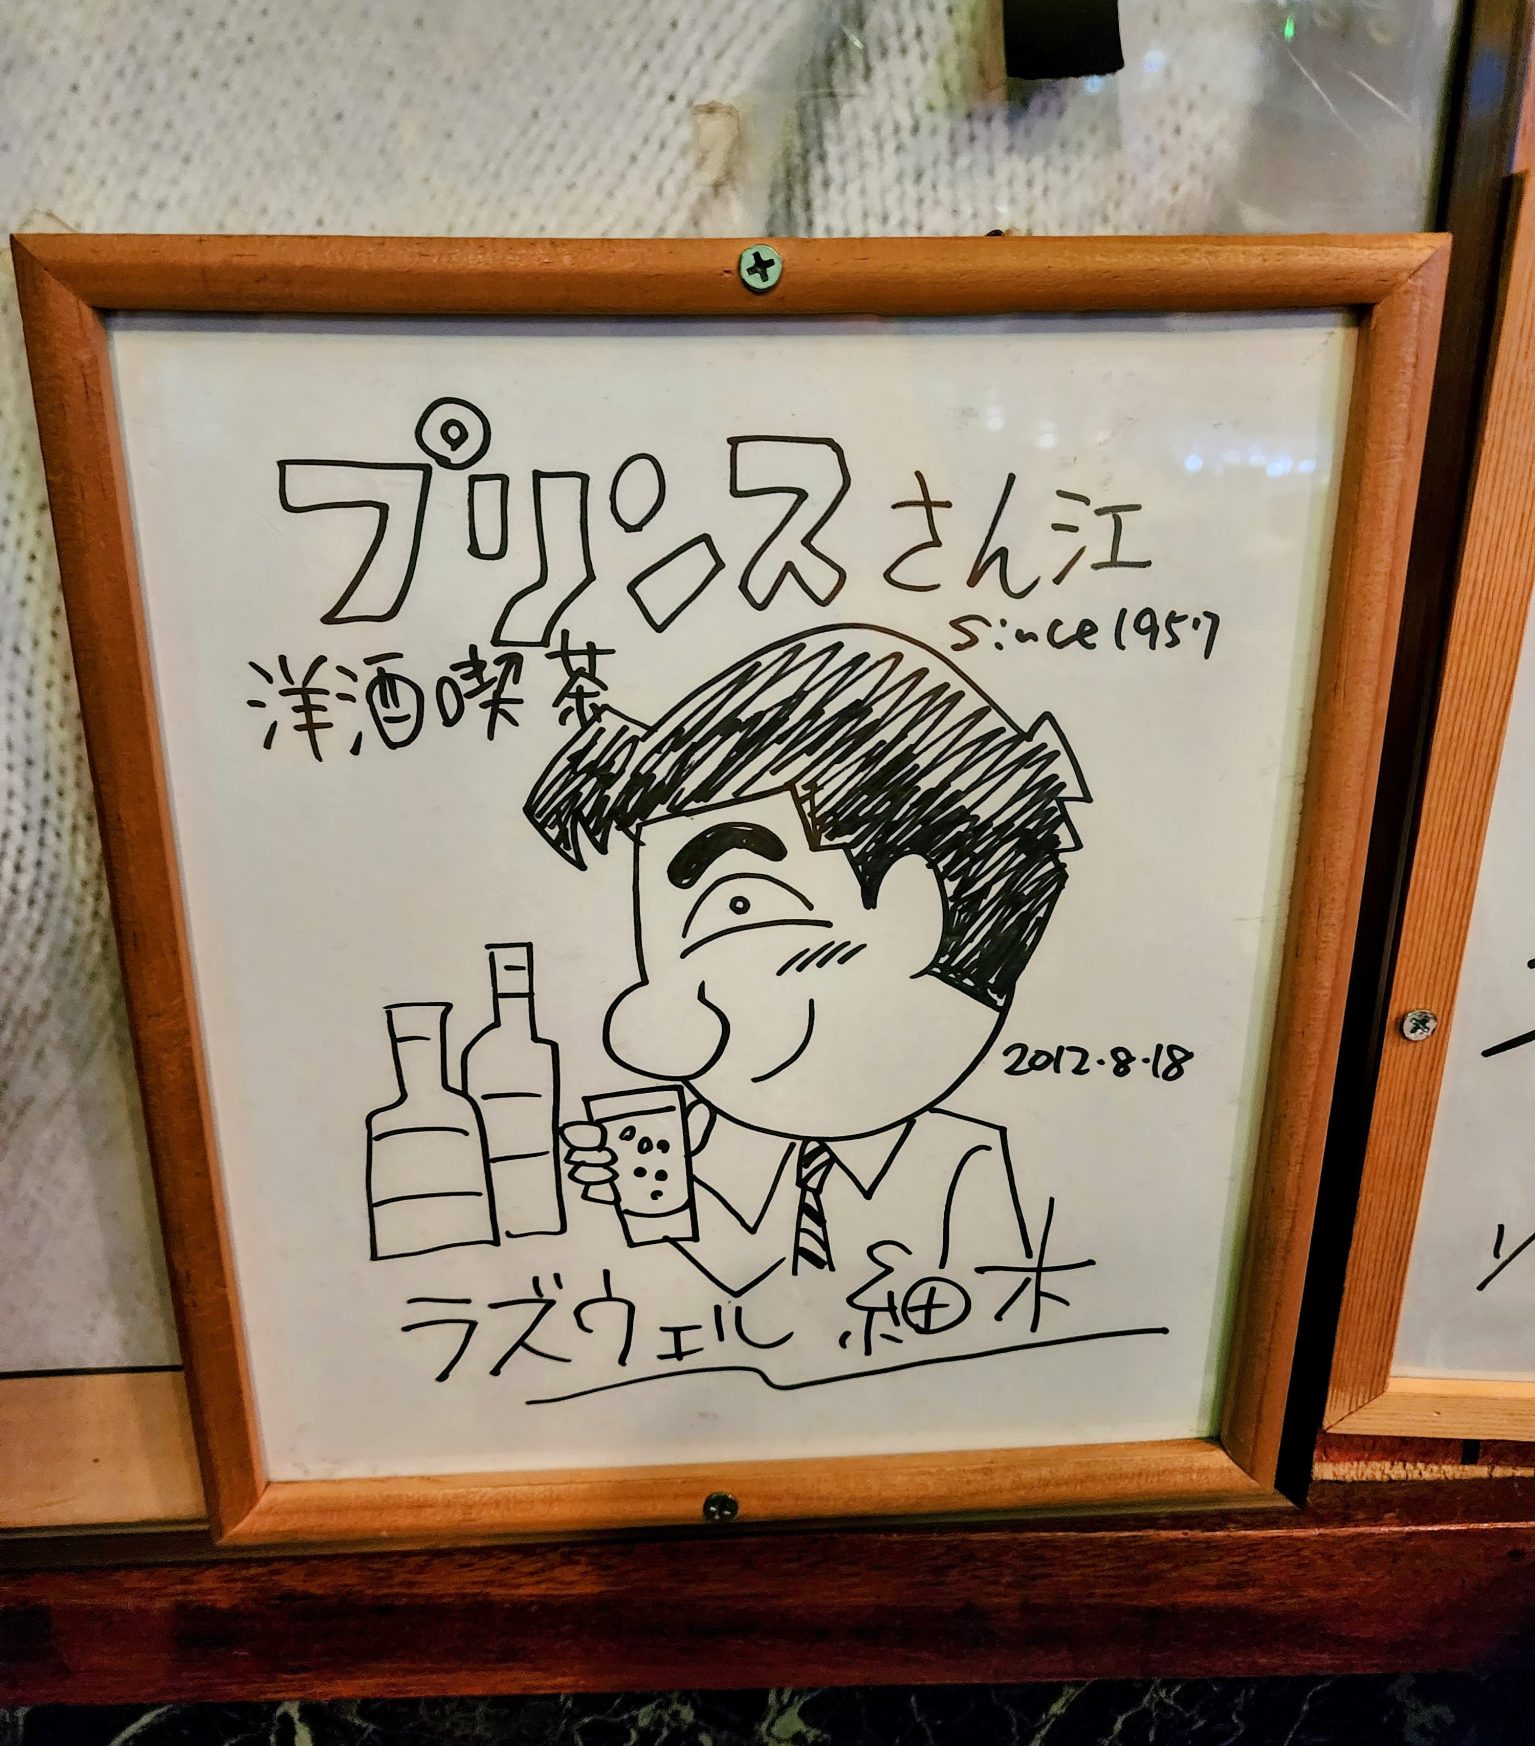 プリンスさん江
since 1957
洋酒喫茶
2012.8.18
ラズウェル細木